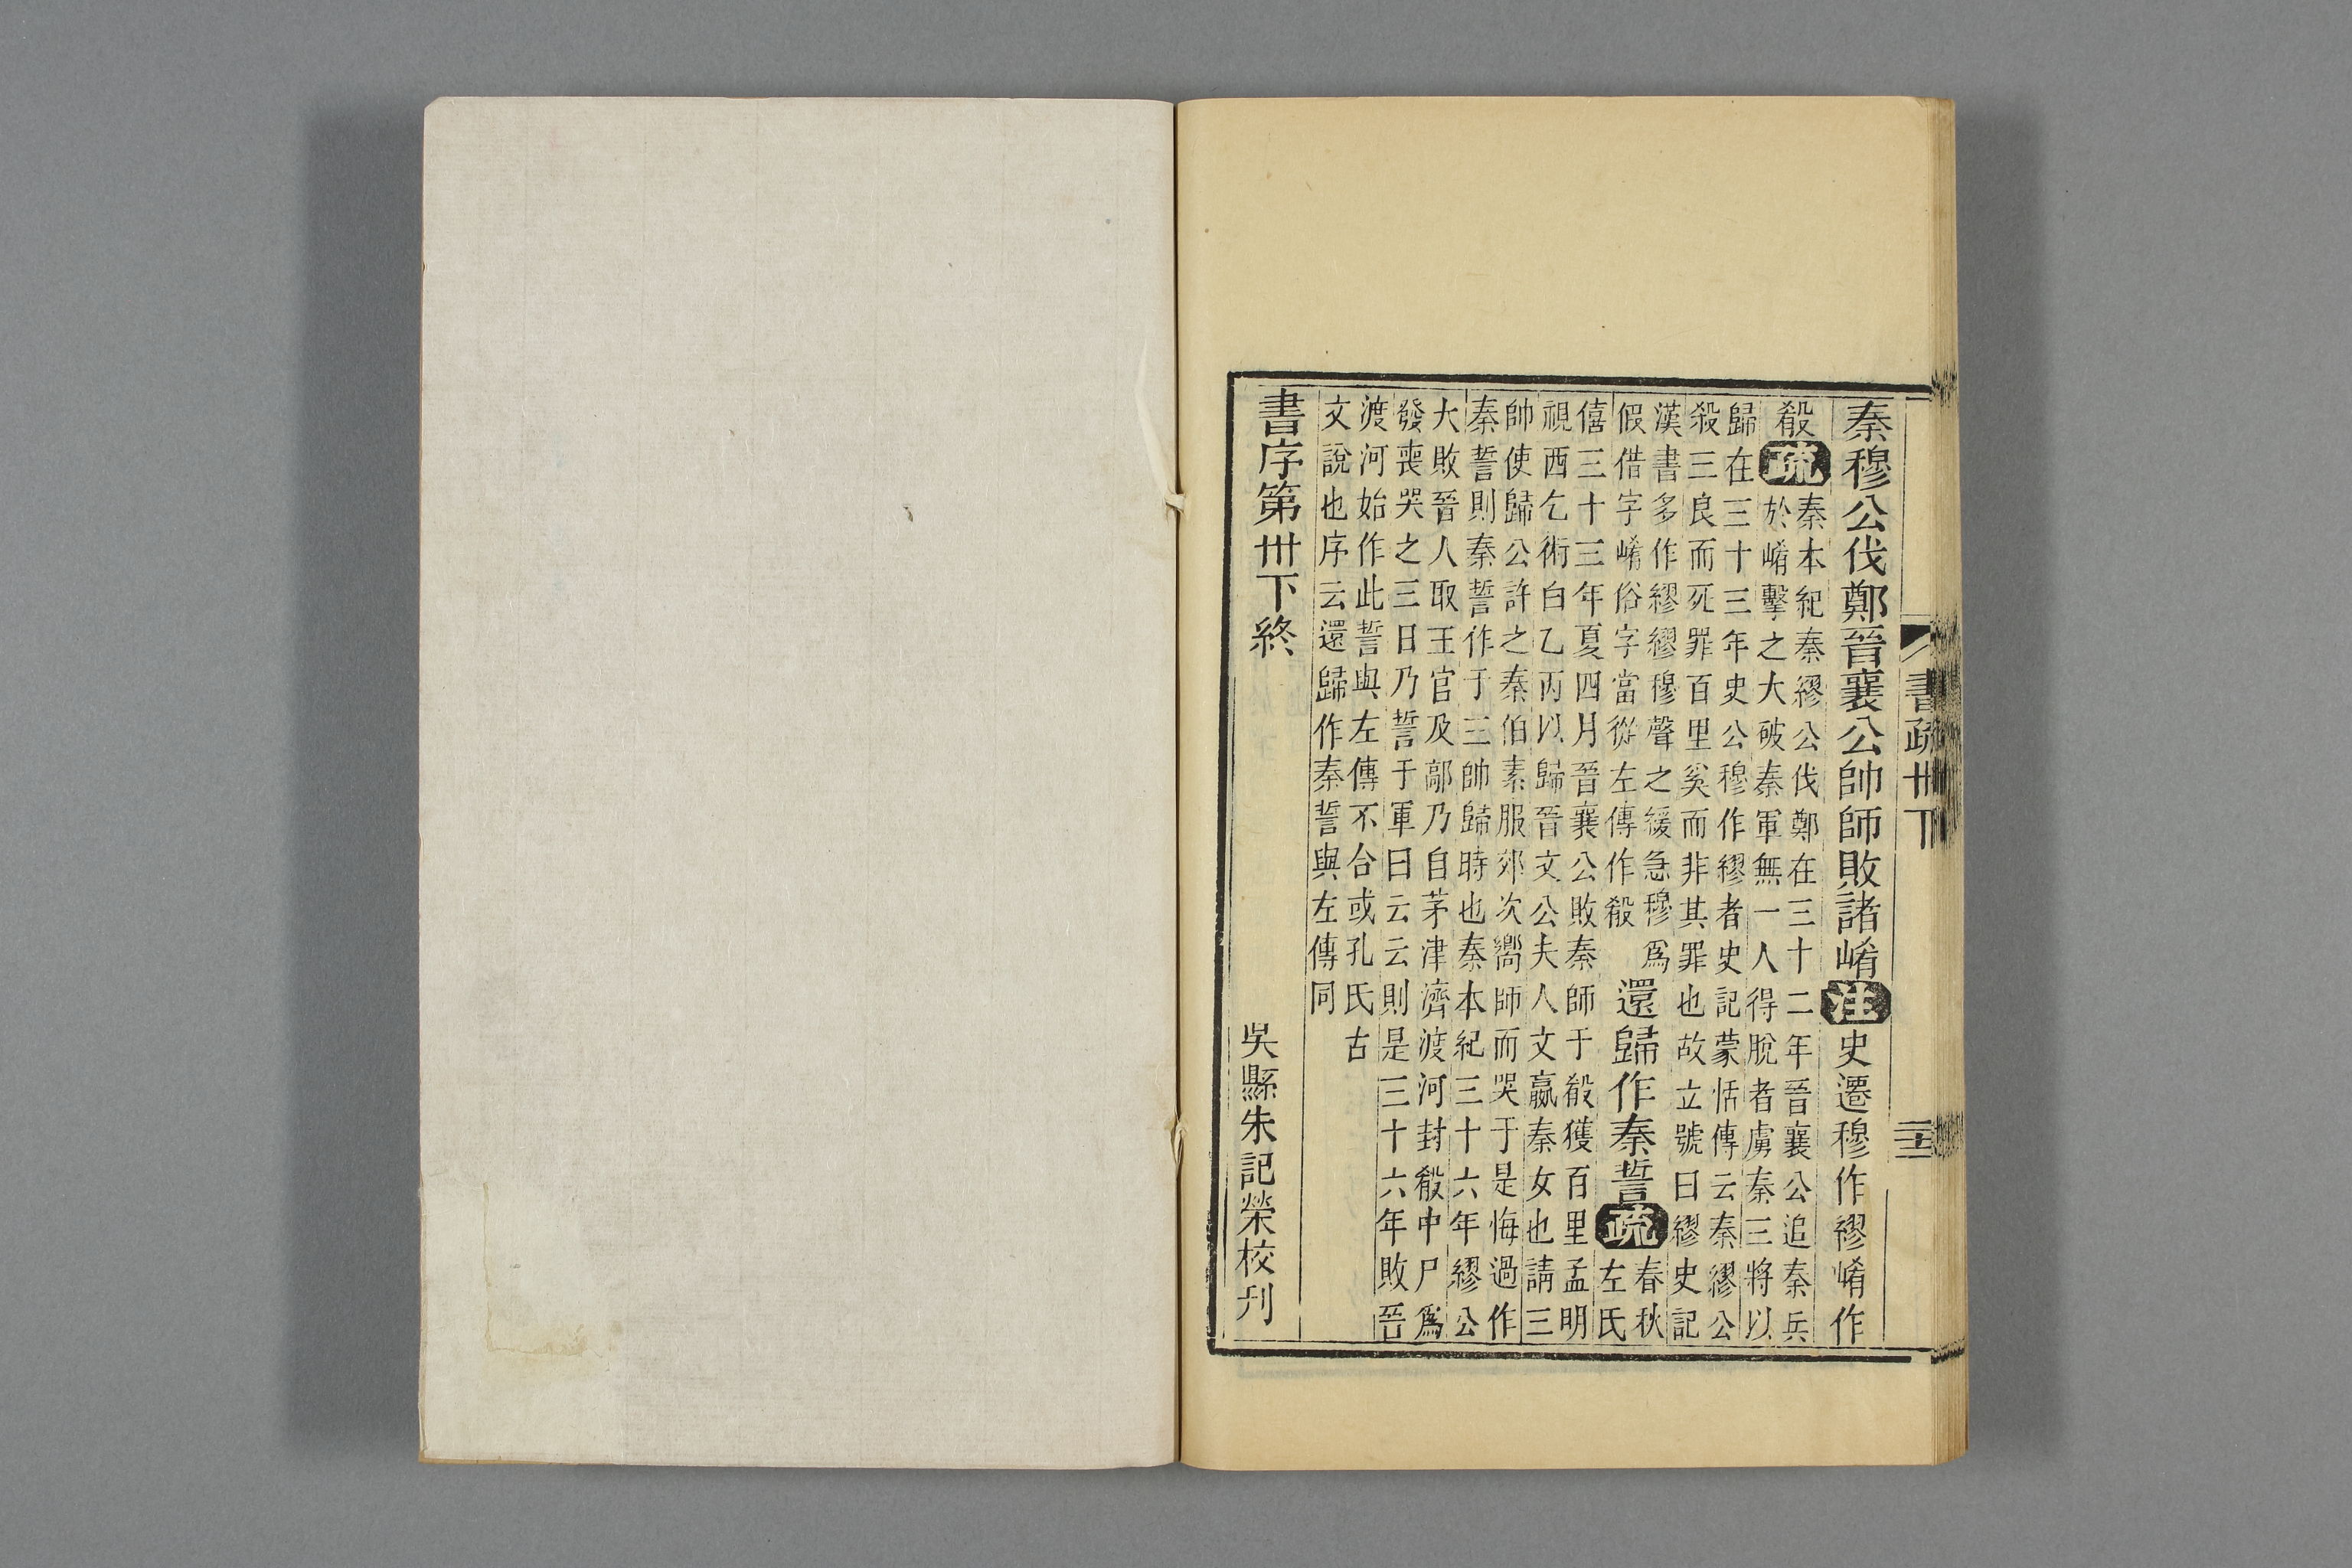 書疏卅下
秦穆公伐鄭晉襄公帥師敗諸崤注史遷穆作繆崤作
殽疏
秦本紀秦繆公伐鄭在三十二年晉襄公追秦兵
於崤擊之大破秦軍無一人得脫者虜秦三將以
歸在三十三年史公穆作繆者史記蒙恬傳云秦繆公
殺三良而死罪百里奚而非其罪也故立號曰繆史記
漢書多作繆繆穆聲之緩急穆爲
假借字崤俗字當從左傳作殽
還歸作秦誓疏
春秋
左氏
僖三十三年夏四月晉襄公敗秦師于殽獲百里孟明
視西乞術白乙丙以歸晉文公夫人文嬴秦女也請三
帥使歸公許之秦伯素服郊次嚮師而哭于是悔過作
秦誓則秦誓作于三帥歸時也秦本紀三十六年繆公
大敗晉人取王官及鄗乃自茅津濟渡河封殽中尸爲
發喪哭之三日乃誓于軍曰云云則是三十六年敗晉
渡河始作此誓與左傳不合或孔氏古
文說也序云還歸作秦誓與左傳同
書序第卅下終
吳縣朱記榮校刊